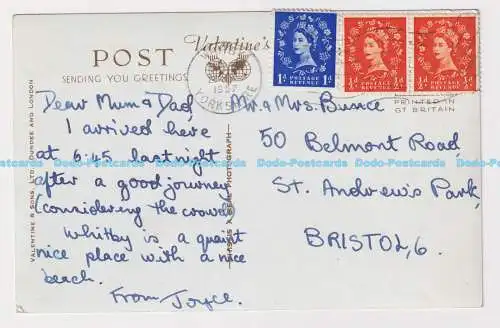 POST
Valentine's
SENDING YOU GREETINGS
VALENTINE & SONS, LTD., DUNDEE AND LONDON
Dear Mum & Dad,
I arrived here
at 6.45 last night
after a good journey
considering the crowd.
Whitby is a quaint
nice place with a nice
beach.
From Joyce.
PHOTOGRAPH
1957
YORKSHIRE
1D 1D
POSTAGE
REVENUE
½D ½D
POSTAGE
REVENUE
½D ½D
POSTAGE
REVENUE
PRINTED IN
GT BRITAIN
Mr. & Mrs. Bunce
50 Belmont Road,
St. Andrew's Park,
BRISTOL, 6.
Dodo-Postcards Dodo-Postcards Dodo-Postcards Dodo-Postcards